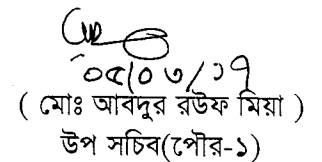 ০৫/০৩/১৭
( মোঃ আবদুর রউফ মিয়া )
উপ সচিব(পৌর-১)